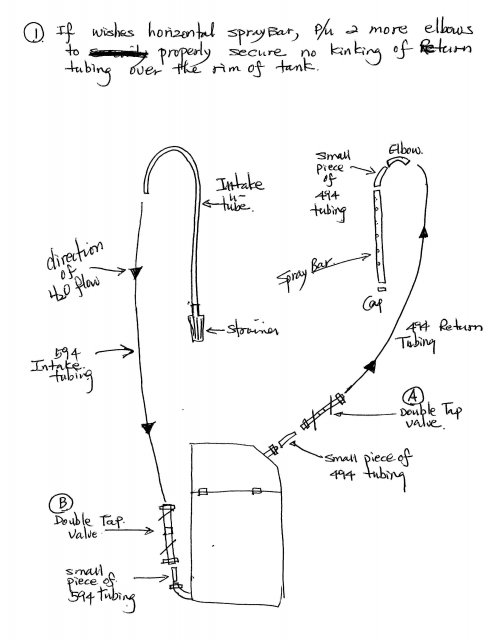 ① If wishes horizontal spraybar, p/u 2 more elbows
to properly secure no kinking of Return
tubing over the rim of tank.
Elbow.
small
piece
of
494
tubing
Intake
u-
tube.
direction
of
H2O flow
Spray Bar
Cap
strainer
494 Return
Tubing
594
Intake
tubing
Ⓐ
Double Tap
valve.
small piece of
494 tubing
Ⓑ
Double Tap
valve
small
piece of
594 tubing